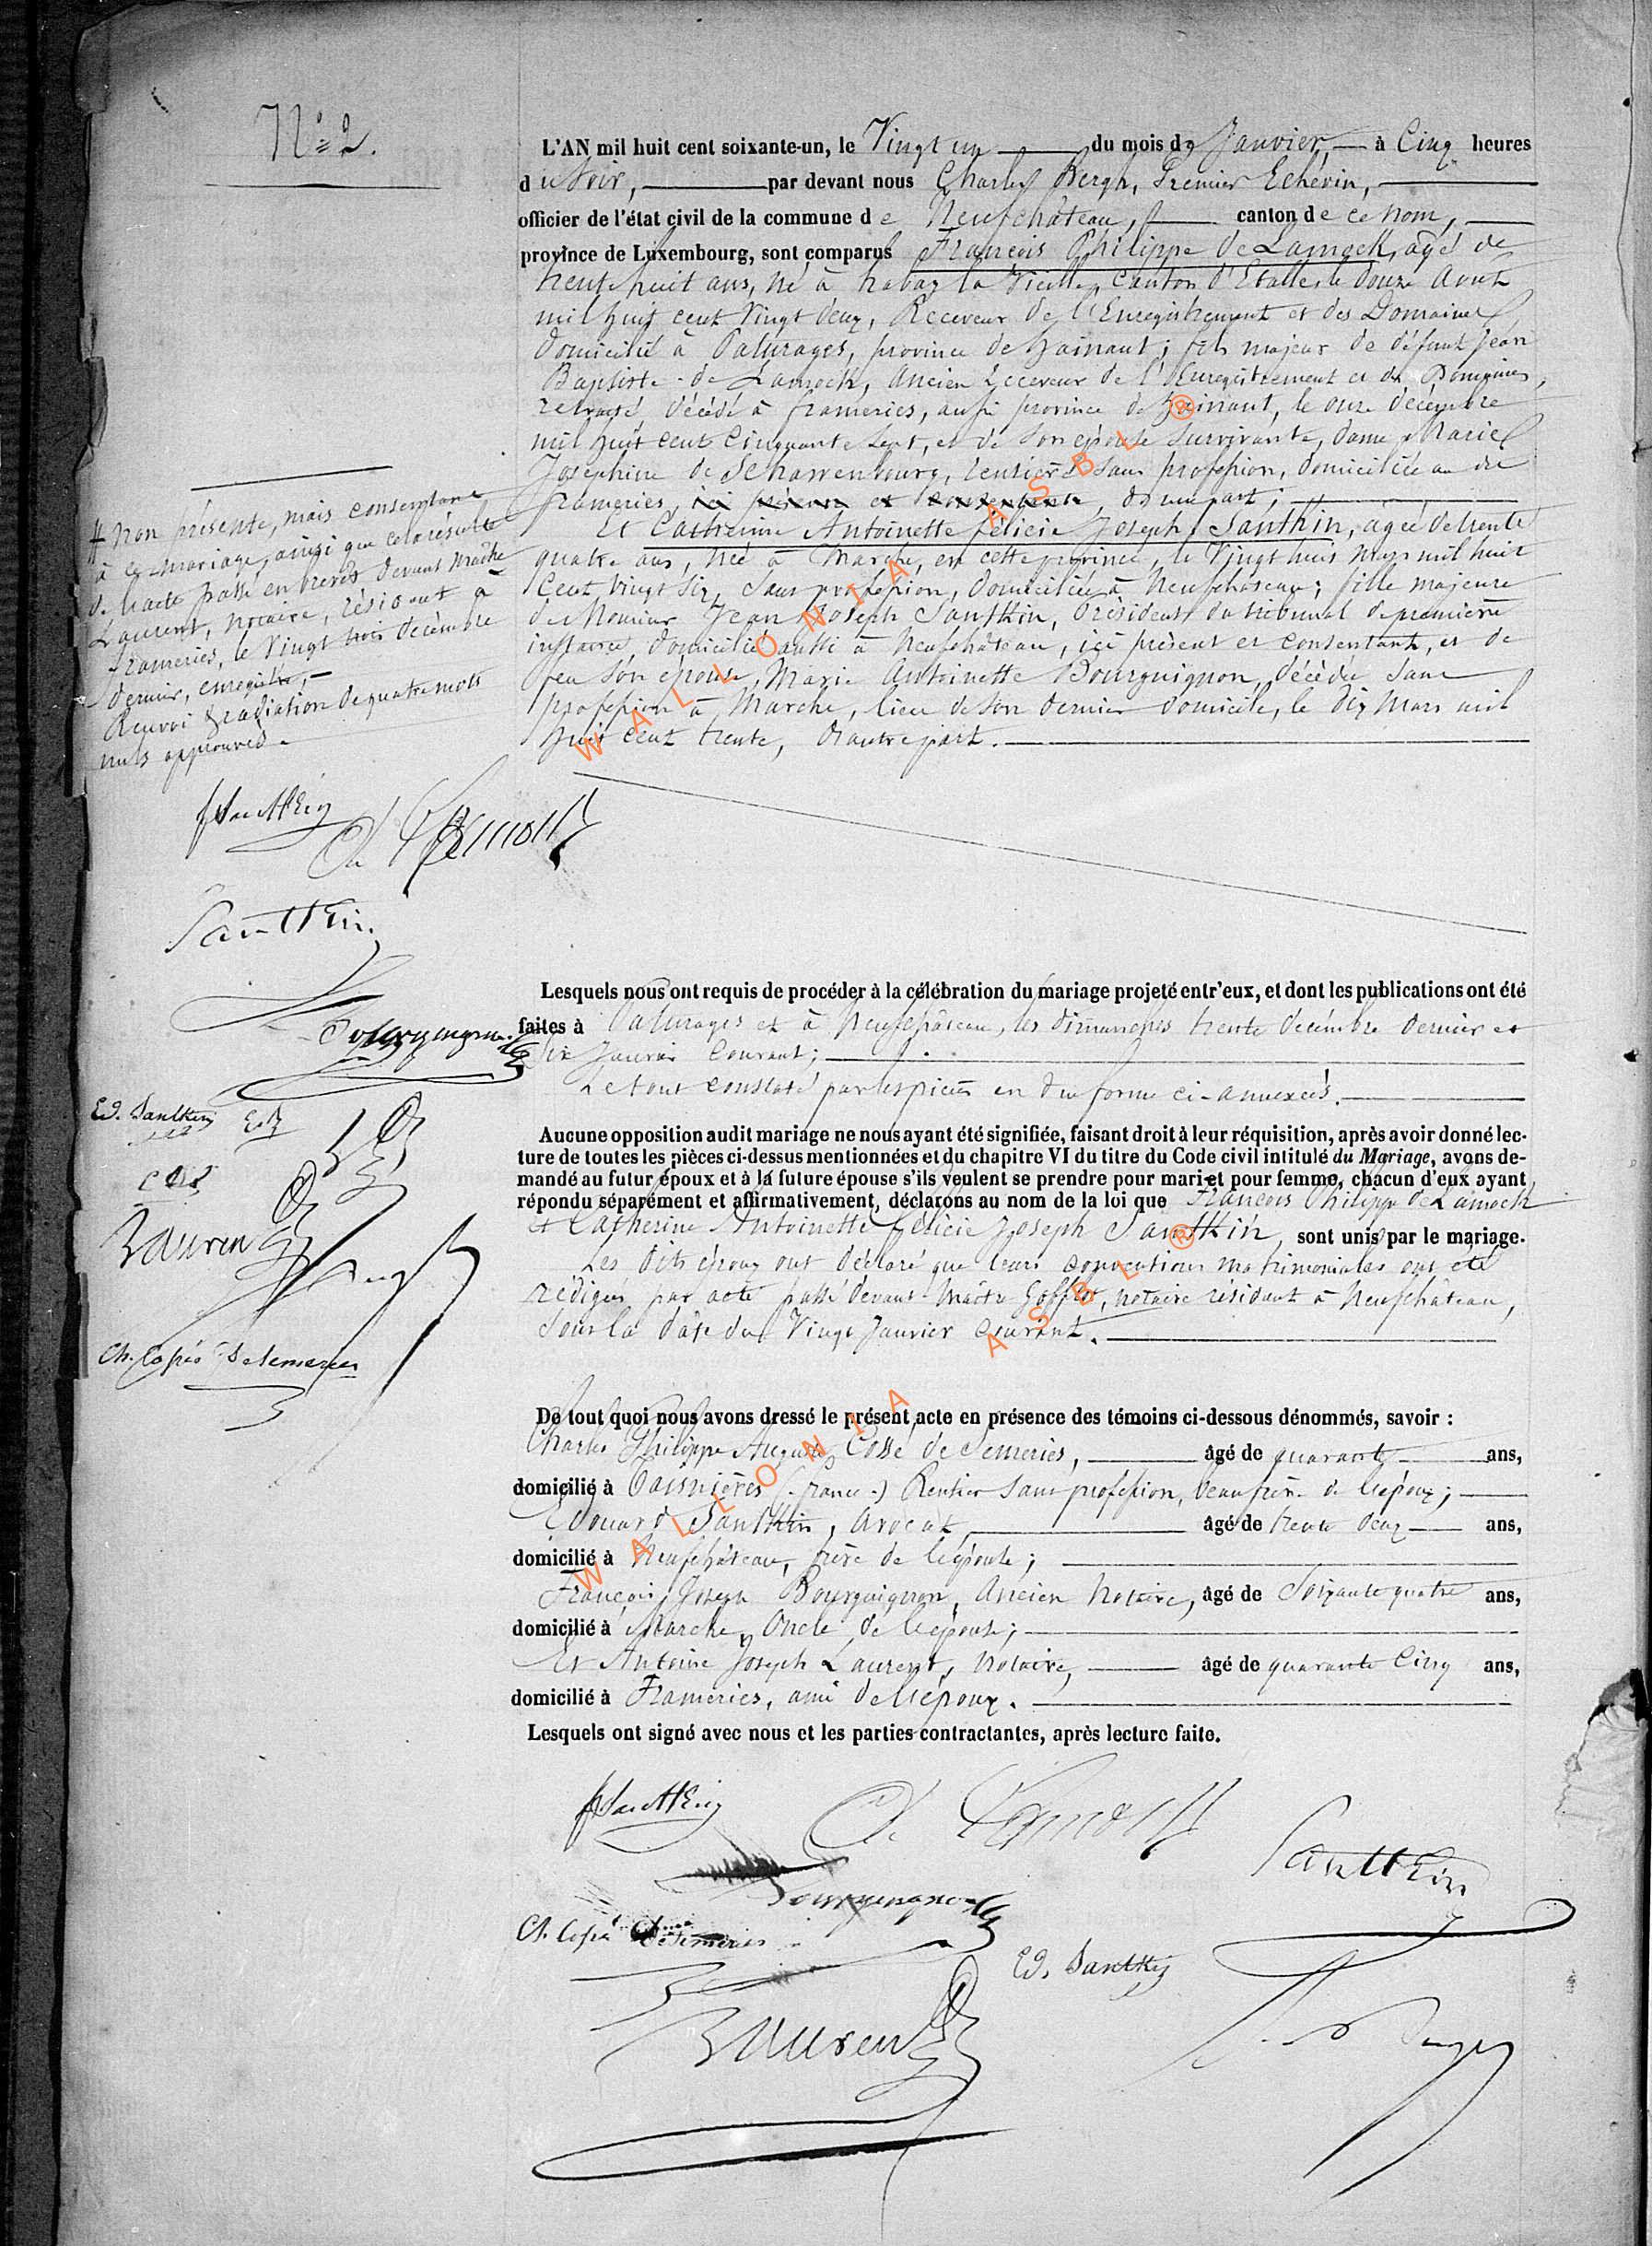 N° 2.
L'AN mil huit cent soixante-un, le Vingt un du mois de Janvier, à Cinq heures
du Soir, par devant nous Charles Bergh, Premier Echevin,
officier de l'état civil de la commune de Neufchâteau, canton de ce nom,
province de Luxembourg, sont comparus François Philippe de Lamock, agé de
trente huit ans, né à habay la Vieille, Canton d'Etalle, le douze Août
mil huit cent Vingt deux, Receveur de l'Enregistrement et des Domaines,
domicilié à Paturages, province de hainaut; fils majeur de défunt Jean
Baptiste de Lamock, Ancien Receveur de l'Enregistrement et des Domaines,
retraité décédé à frameries, aussi province de hainaut, le onze décembre
mil huit cent Cinquante sept, et de son épouse Survivante, dame Marie
Joséphine de Scharrenbourg, rentière sans profession, domiciliée au dit
frameries, ici présente et consentante, d'une part;
Et Catherine Antoinette félicie Joseph Santkin, agée de trente
quatre ans, née à Marche, en cette province, le Vingt huit Mars mil huit
Cent Vingt Six, Sans profession, domiciliée à Neufchâteau; fille majeure
de Monsieur Jean Joseph Santkin, Président du tribunal de première
instance, domicilié aussi à Neufchâteau, ici présent et consentant, et de
feu Son épouse, Marie Antoinette Bourguignon, décédée Sans
profession à Marche, lieu de son dernier domicile, le dix Mars mil
huit cent trente, d'autre part.
# Non présente, mais consentante
à ce mariage, ainsi que cela résulte
de l'acte passé en brevet devant Maître
Laurent, notaire, résidant à
frameries, le Vingt trois décembre
dernier, enregistré,
Renvoi & radiation de quatre mots
nuls approuvés.
JSantkin
De Lamock
Santkin.
Bourguignon
Ed. Santkin
Laurent
Ch. Cossé De Semeries
Lesquels nous ont requis de procéder à la célébration du mariage projeté entr'eux, et dont les publications ont été
faites à Paturages et à Neufchâteau, les dimanches trente decembre dernier et
Six Janvier Courant;
Le tout constaté par les pièces en due forme ci-annexées.
Aucune opposition audit mariage ne nous ayant été signifiée, faisant droit à leur réquisition, après avoir donné lec-
ture de toutes les pièces ci-dessus mentionnées et du chapitre VI du titre du Code civil intitulé du Mariage, avons de-
mandé au futur époux et à la future épouse s'ils veulent se prendre pour mari et pour femme, chacun d'eux ayant
répondu séparément et affirmativement, déclarons au nom de la loi que François Philippe de Lamock
et Catherine Antoinette félicie Joseph Santkin, sont unis par le mariage.
Les dits époux ont déclaré que leurs conventions matrimoniales ont été
rédigées par acte passé devant Maître Goffin, notaire résidant à Neufchâteau,
Sous la date du Vingt Janvier Courant.
De tout quoi nous avons dressé le présent acte en présence des témoins ci-dessous dénommés, savoir :
Charles Philippe Auguste Cossé de Semeries, âgé de quarante ans,
domicilié à Taisnières (france) Rentier Sans profession, beau frère de l'époux;
Edouard Santkin, Avocat, âgé de trente deux ans,
domicilié à Neufchâteau, frère de l'épouse;
François Joseph Bourguignon, Ancien Notaire, âgé de Soixante quatre ans,
domicilié à Marche, Oncle de l'épouse;
Et Antoine Joseph Laurent, notaire, âgé de quarante Cinq ans,
domicilié à Frameries, ami de l'époux.
Lesquels ont signé avec nous et les parties contractantes, après lecture faite.
JSantkin
De Lamock
Santkin
Bourguignon
Ch. Cossé De Semeries
Ed. Santkin
Laurent
WALLONIA ASBL ®
WALLONIA ASBL ®